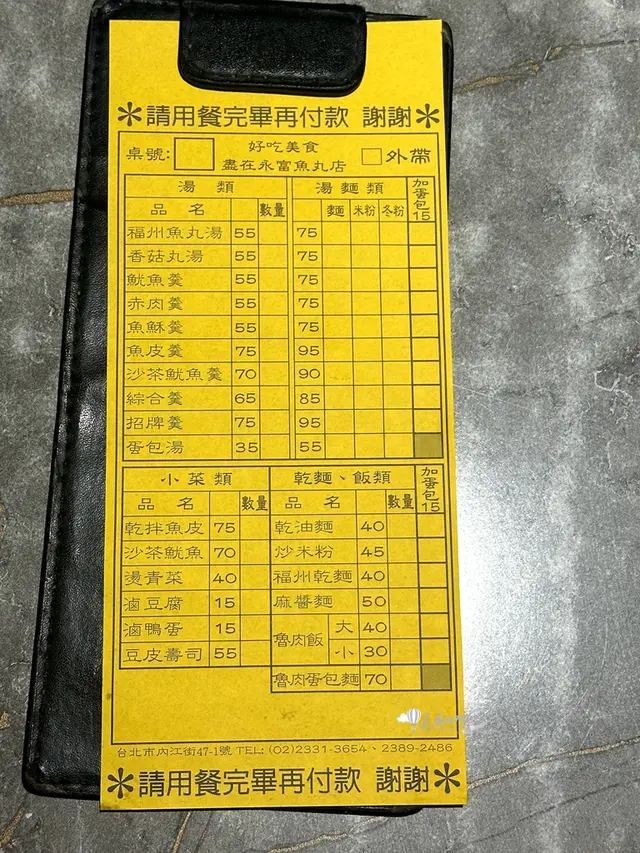 ＊請用餐完畢再付款 謝謝＊
桌號: 好吃美食 盡在永富魚丸店 外帶
湯類 湯麵類 加蛋包15
品名 數量 麵 米粉 冬粉
福州魚丸湯 55 75
香菇丸湯 55 75
魷魚羹 55 75
赤肉羹 55 75
魚穌羹 55 75
魚皮羹 75 95
沙茶魷魚羹 70 90
綜合羹 65 85
招牌羹 75 95
蛋包湯 35 55
小菜類 乾麵、飯類 加蛋包15
品名 數量 品名 數量
乾拌魚皮 75 乾油麵 40
沙茶魷魚 70 炒米粉 45
燙青菜 40 福州乾麵 40
滷豆腐 15 麻醬麵 50
滷鴨蛋 15 魯肉飯 大 40
豆皮壽司 55 小 30
魯肉蛋包麵 70
台北市內江街47-1號 TEL: (02)2331-3654、2389-2486
＊請用餐完畢再付款 謝謝＊